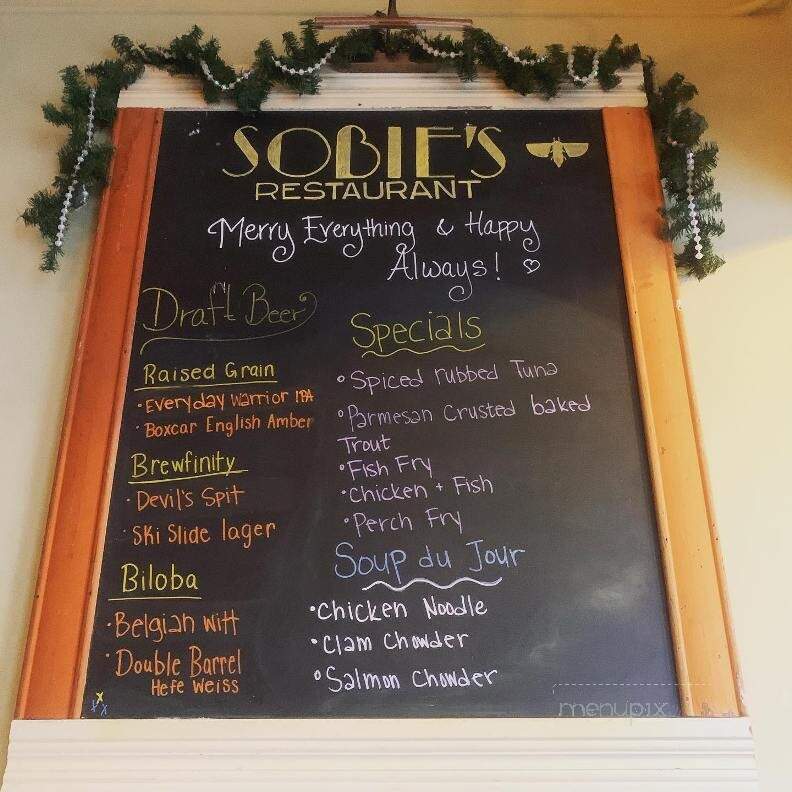 SOBIE'S
RESTAURANT
Merry Everything & Happy
Always!
Draft Beer
Raised Grain
• Everyday Warrior IPA
• Boxcar English Amber
Brewfinity
• Devil's Spit
• Ski Slide lager
Biloba
• Belgian Witt
• Double Barrel
Hefe Weiss
Specials
• Spiced rubbed Tuna
• Parmesan Crusted baked
Trout
• Fish Fry
• Chicken + Fish
• Perch Fry
Soup du Jour
• Chicken Noodle
• Clam Chowder
• Salmon Chowder
menupix